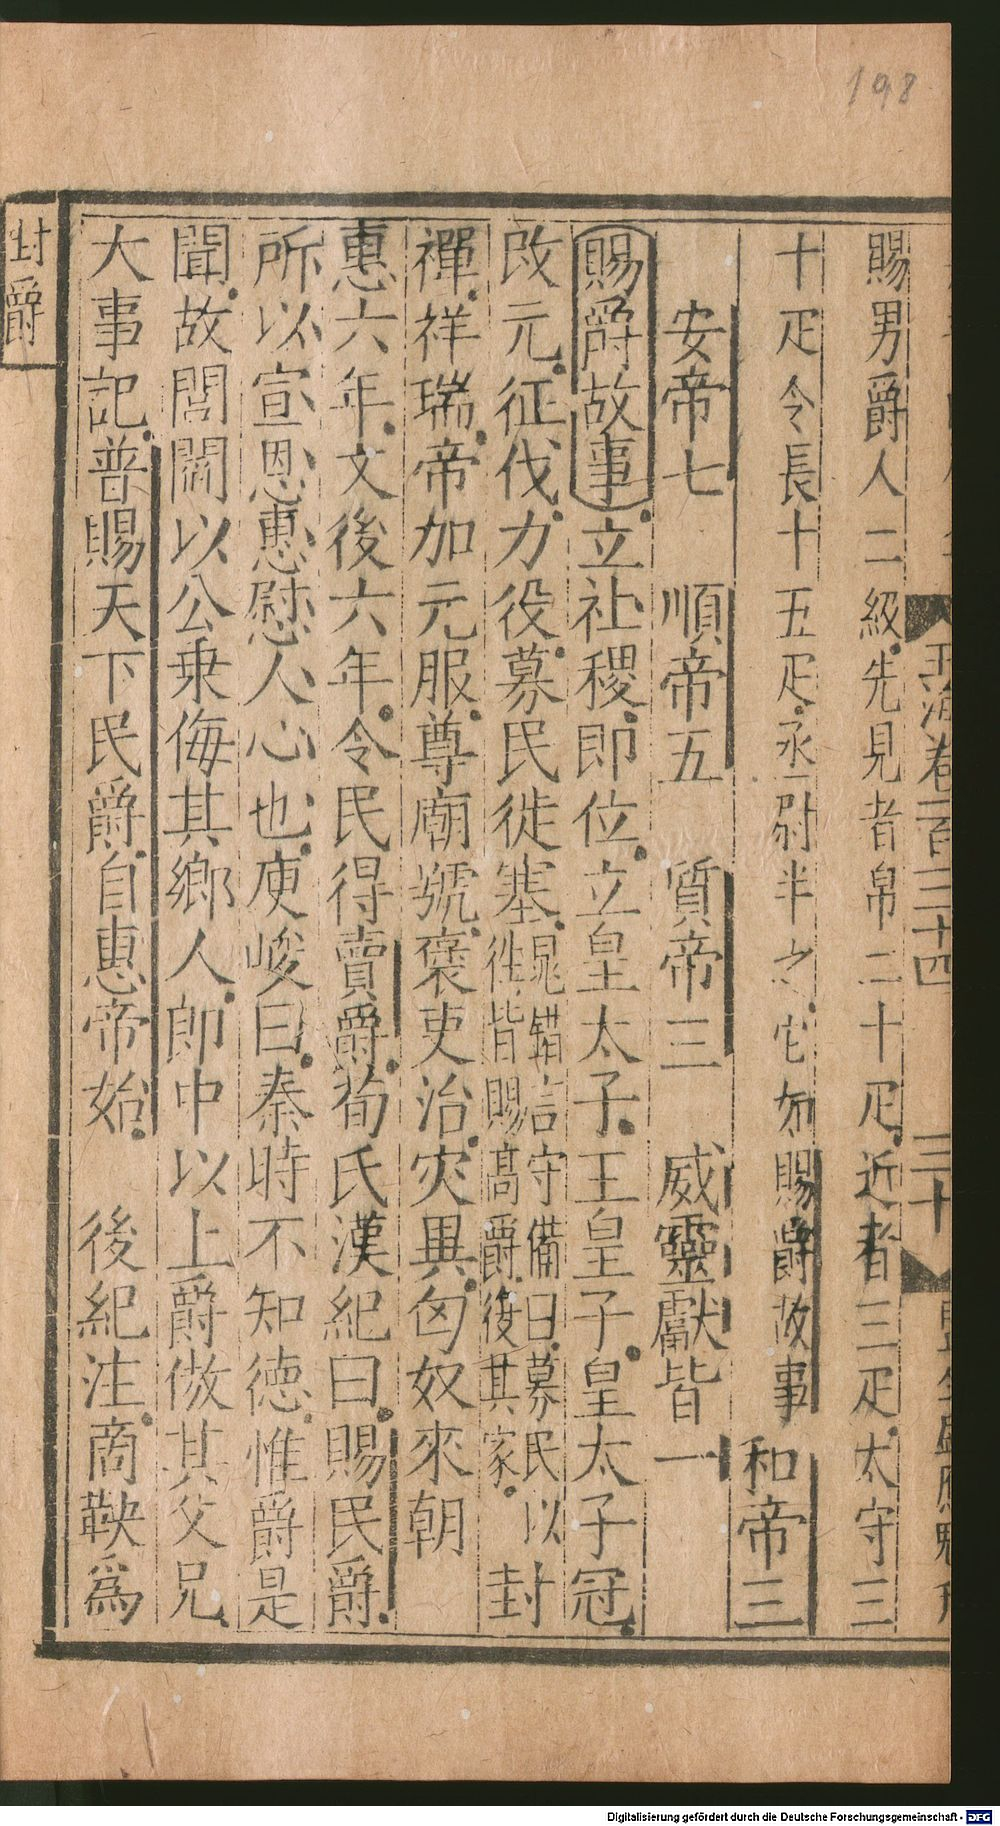 198
玉海卷一百三十四
三十
賜男爵人二級先見者帛二十疋近者三疋太守三
十疋令長十五疋丞尉半之它如賜爵故事 和帝三
安帝七 順帝五 質帝三 威靈獻皆一
賜爵故事立社稷即位立皇太子王皇子皇太子冠
改元征伐力役募民徙塞晁錯言守備曰募民以徙皆賜高爵復其家封
禪祥瑞帝加元服尊廟號褒吏治灾異匈奴來朝
惠六年文後六年令民得賣爵荀氏漢紀曰賜民爵
所以宣恩惠慰人心也庾峻曰秦時不知德惟爵是
聞故閭閻以公乗侮其鄉人郎中以上爵傲其父兄
大事記普賜天下民爵自惠帝始 後紀注商鞅爲
封爵
Digitalisierung gefördert durch die Deutsche Forschungsgemeinschaft - DFG